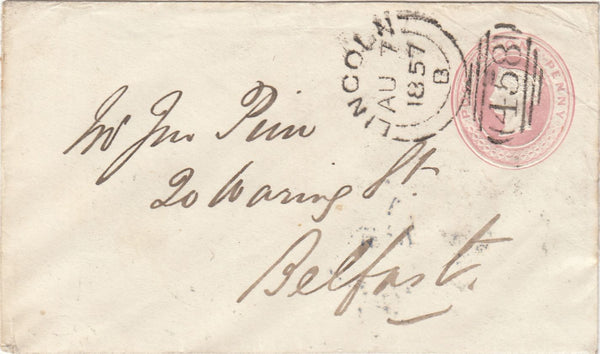 LINCOLN
AU 7
1857
B
458
PENNY
Mr Jno Pim
20 Waring St
Belfast.